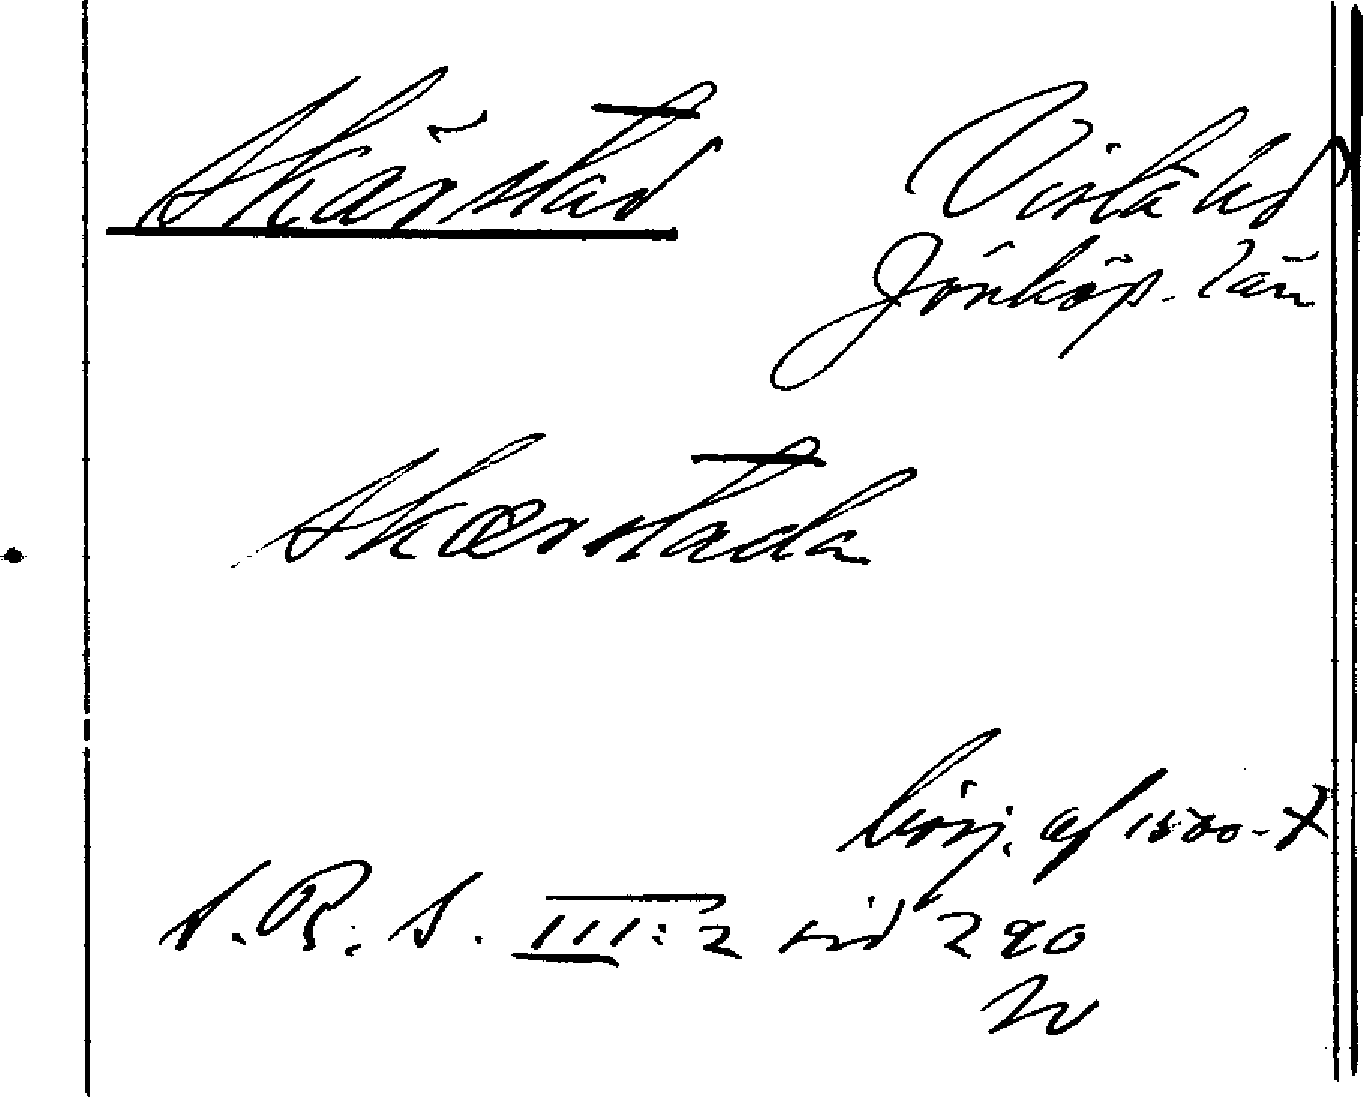 Skärstad Vista hd
Jönköp. län
Skærstada
börj. af 1500-t
S. R. S. III:2 sid 290